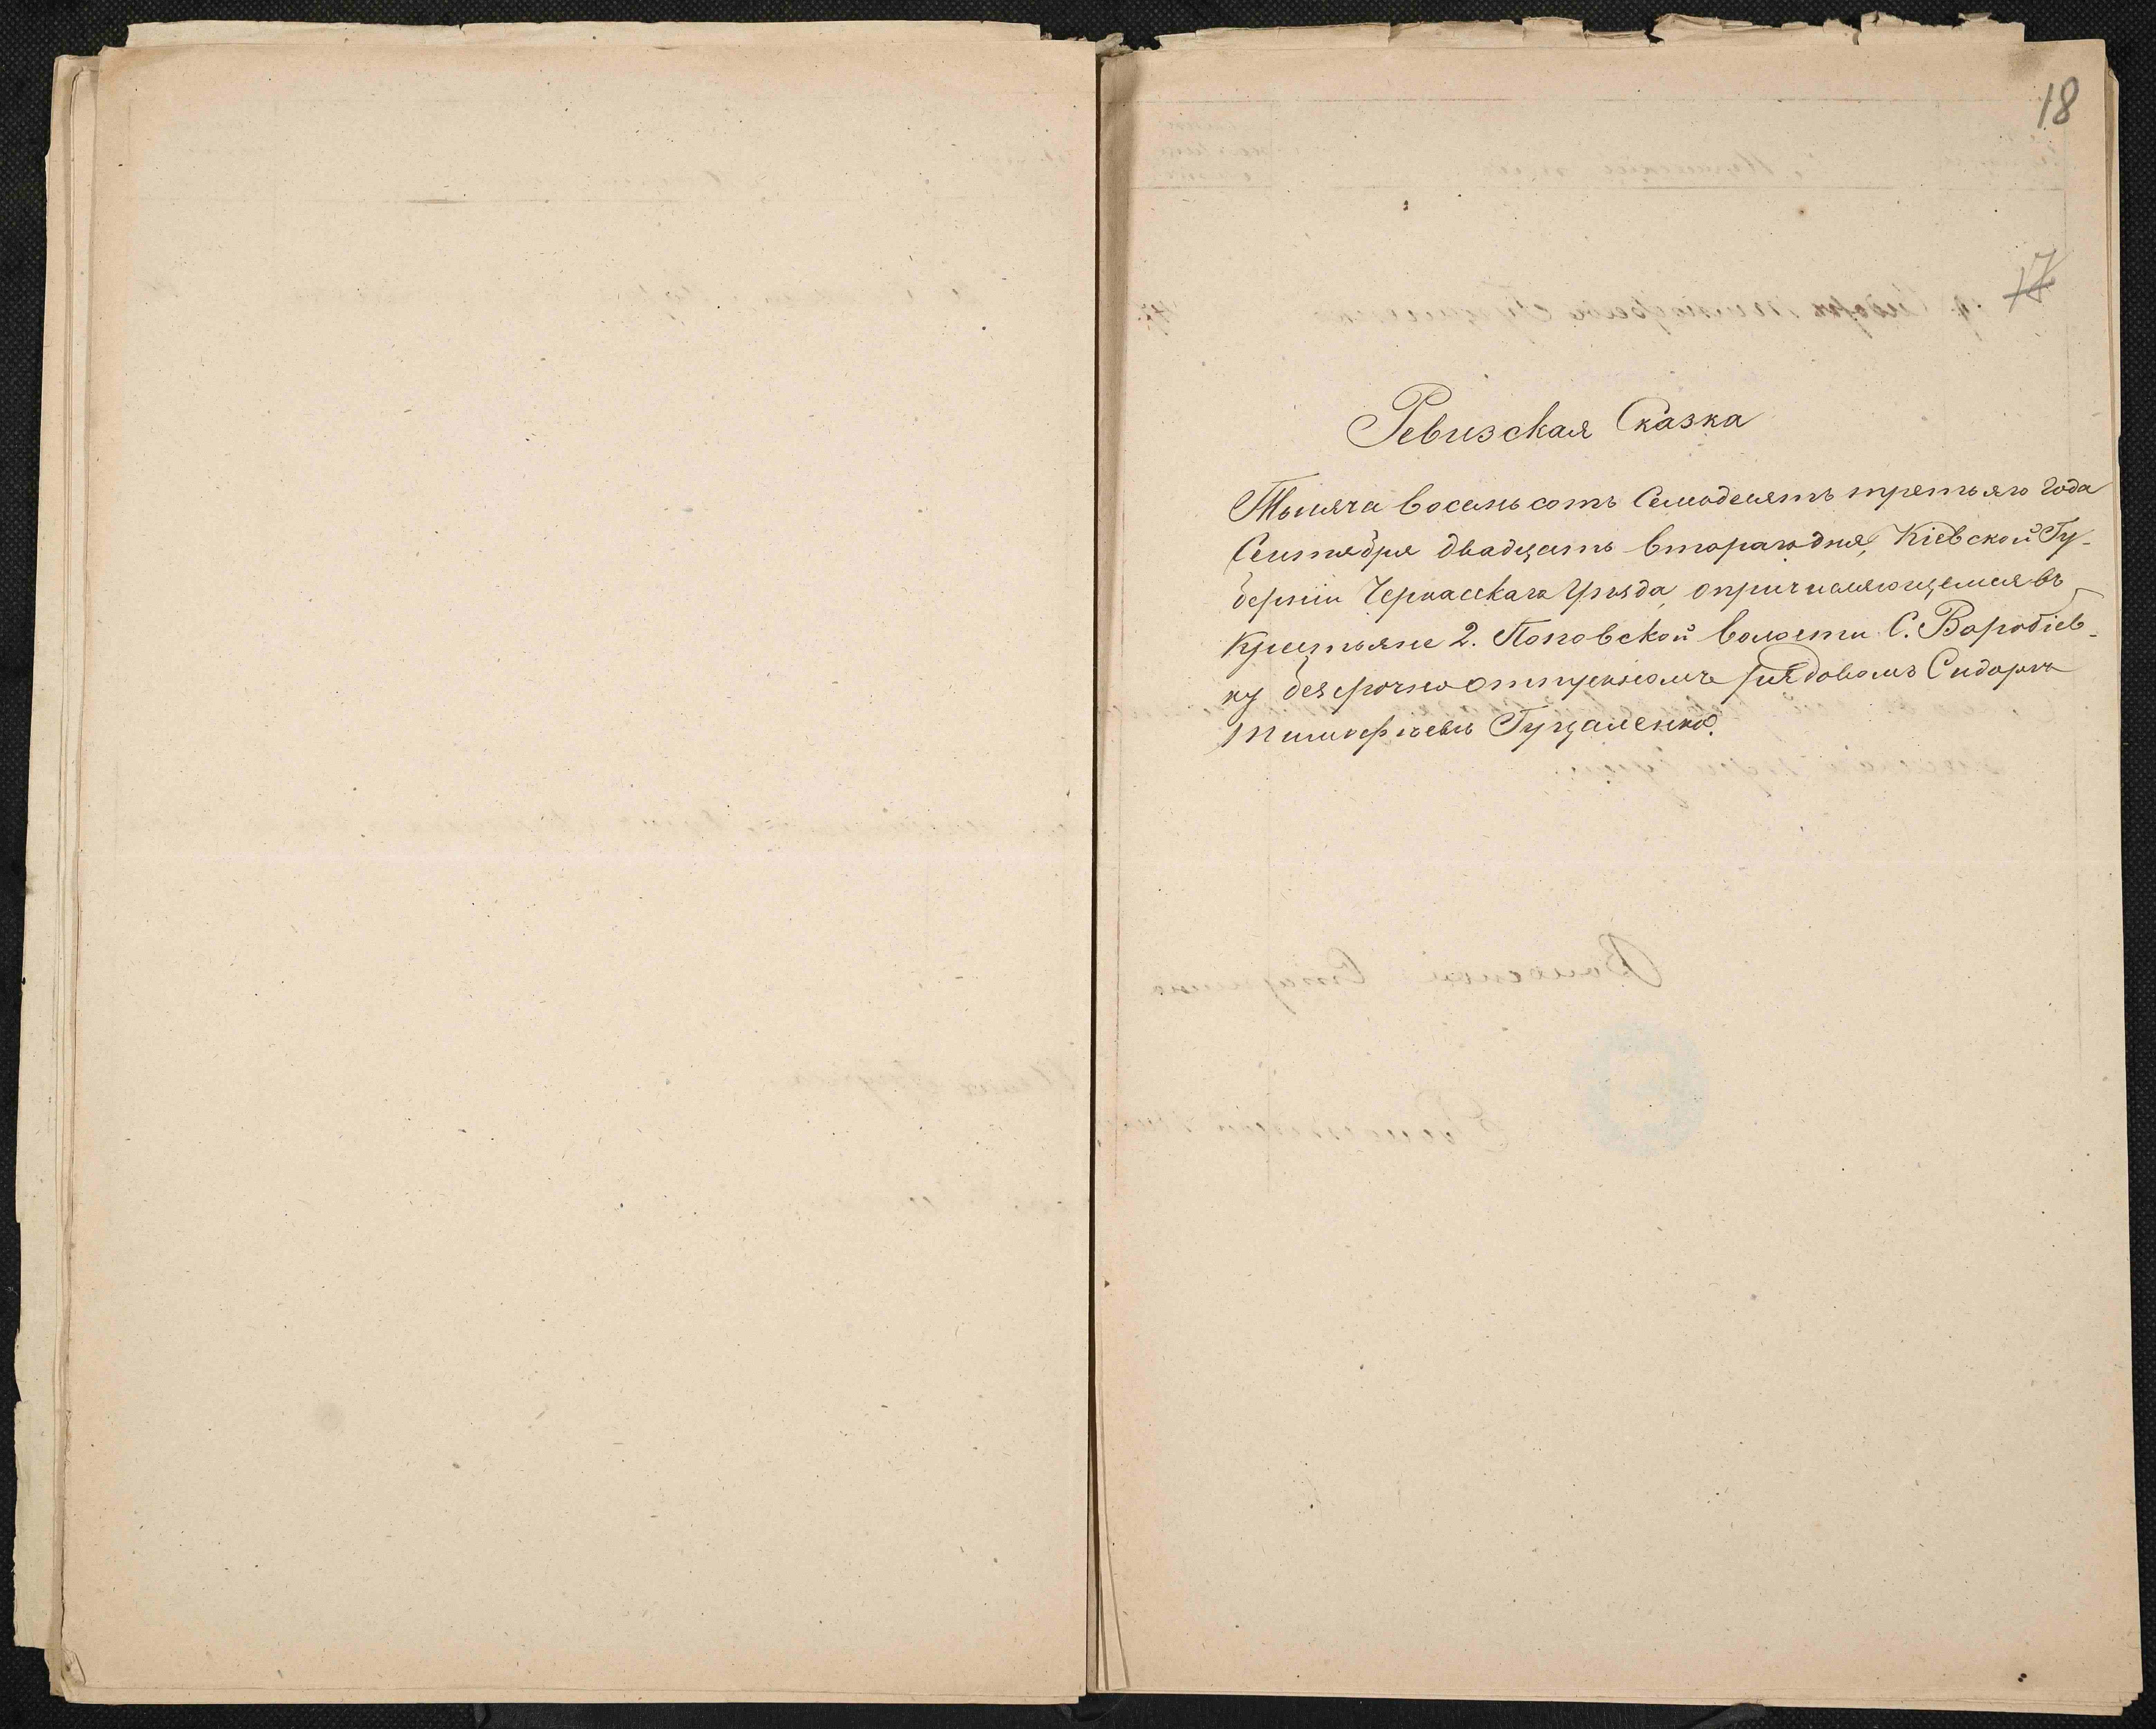 18
17
Ревизская Сказка
Тысяча восемьсотъ Семьдесятъ третьяго года
Сентября двадцать втораго дня, Кіевской Гу-
берніи Черкасскаго Уѣзда, о причисляющемся въ
Крестьяне 2. Поповской волости С. Воробіев-
ку безсрочно отпускномъ рядовомъ Сидорѣ
Тимофѣевѣ Гуцаленко.